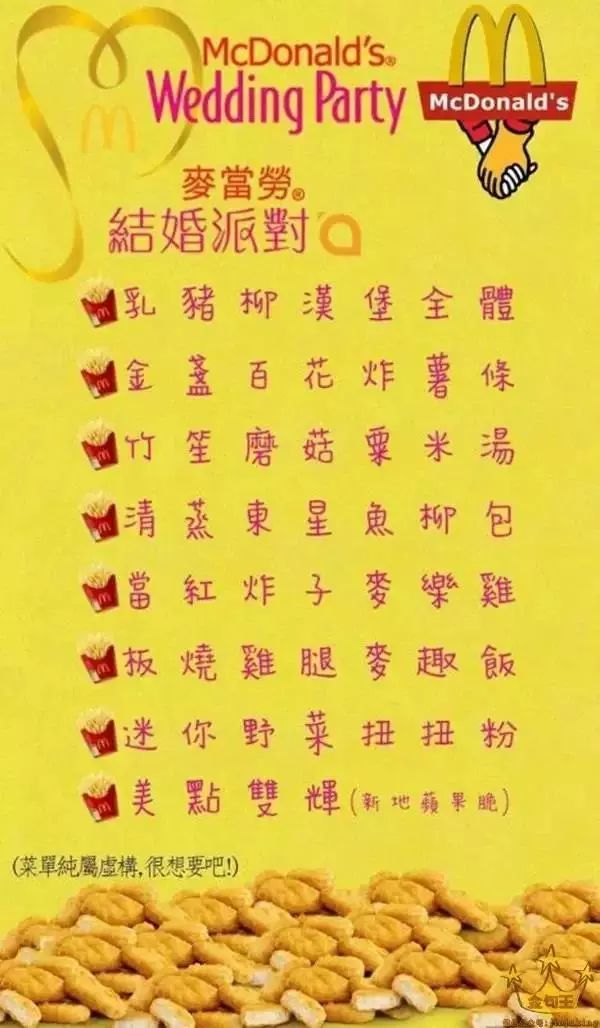 McDonald's®
Wedding Party
McDonald's
麥當勞®
結婚派對
乳豬柳漢堡全體
金盞百花炸薯條
竹笙磨菇粟米湯
清蒸東星魚柳包
當紅炸子麥樂雞
板燒雞腿麥趣飯
迷你野菜扭扭粉
美點雙輝(新地蘋果脆)
(菜單純屬虛構,很想要吧!)
金句王